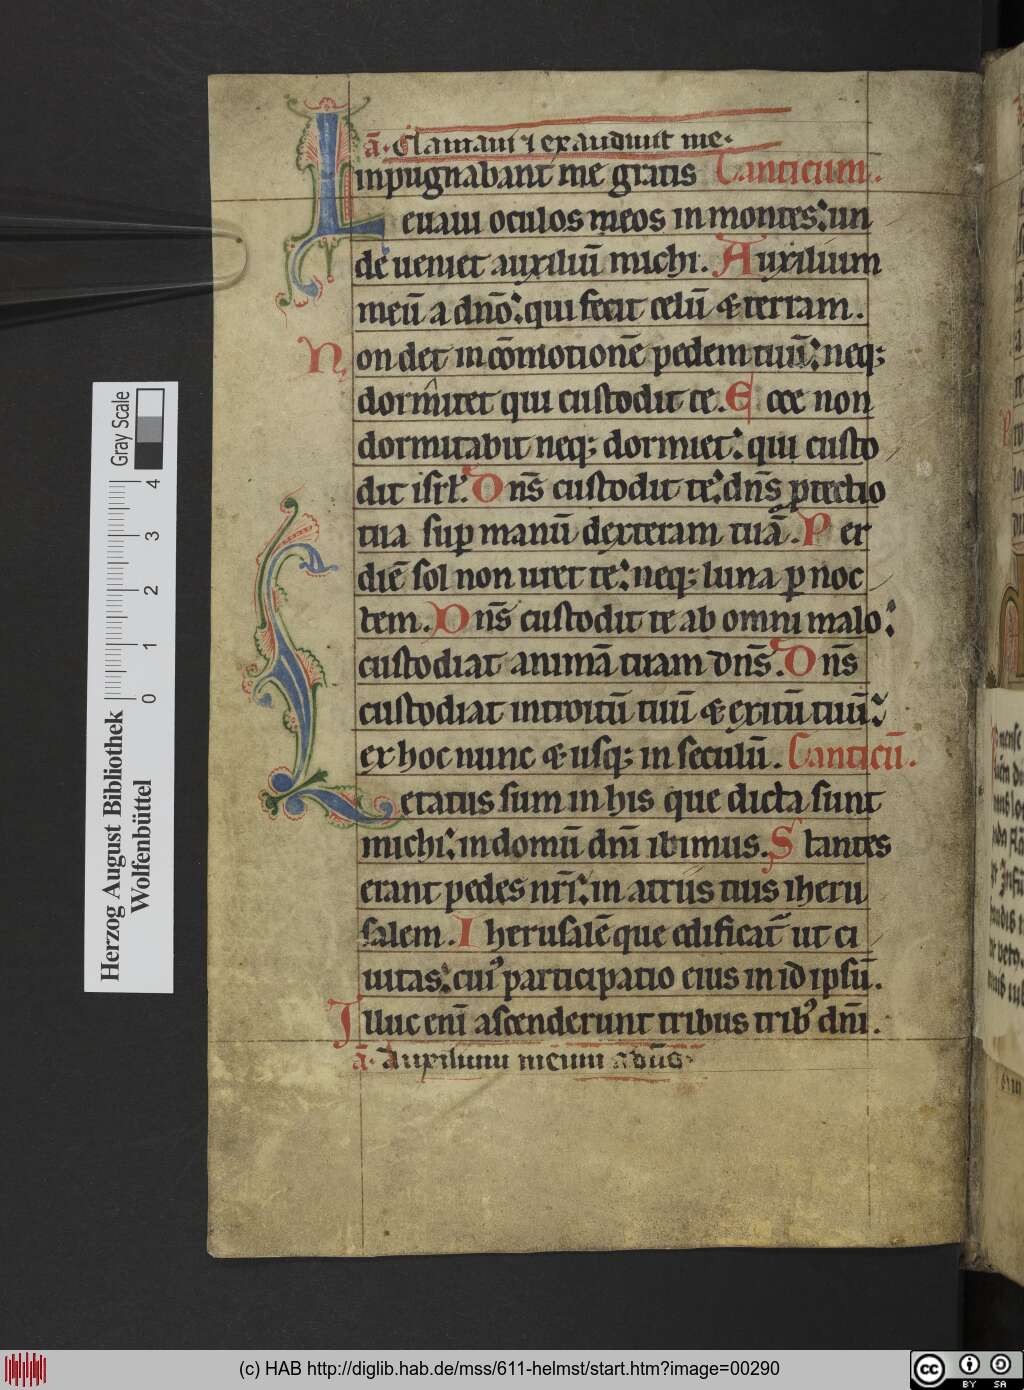 ā. Clamaui ⁊ exaudiuit me.
inpugnabant me gratis Canticum.
Leuaui oculos meos in montes: un
de ueniet auxiliū michi. Auxilium
meū a dn̄o: qui fecit celū & terram.
Non det in cōmotionē pedem tuū: neq;
dormitet qui custodit te. Ecce non
dormitabit neq; dormiet: qui custo
dit isrl̄. Dn̄s custodit te: dn̄s ꝓtectio
tua suꝑ manū dexteram tuā. Per
diē sol non uret te: neq; luna ꝑ noc
tem. Dn̄s custodit te ab omni malo:
custodiat animā tuam dn̄s. Dn̄s
custodiat introitū tuū & exitū tuū:
ex hoc nunc & usq; in seculū. Canticū.
Letatus sum in his que dicta sunt
michi: in domū dn̄i ibimus. Stantes
erant pedes nr̄i: in atriis tuis iheru
salem. Iherusalē que edificat̄ ut ci
uitas: cui᾽ participatio eius in id ipsū.
Illuc eni̅ ascenderunt tribus trib᾽ dn̄i.
ā. Auxilium meum a dn̄o.
Herzog August Bibliothek
Wolfenbüttel
0 1 2 3 4
Gray Scale
(c) HAB http://diglib.hab.de/mss/611-helmst/start.htm?image=00290
cc BY SA